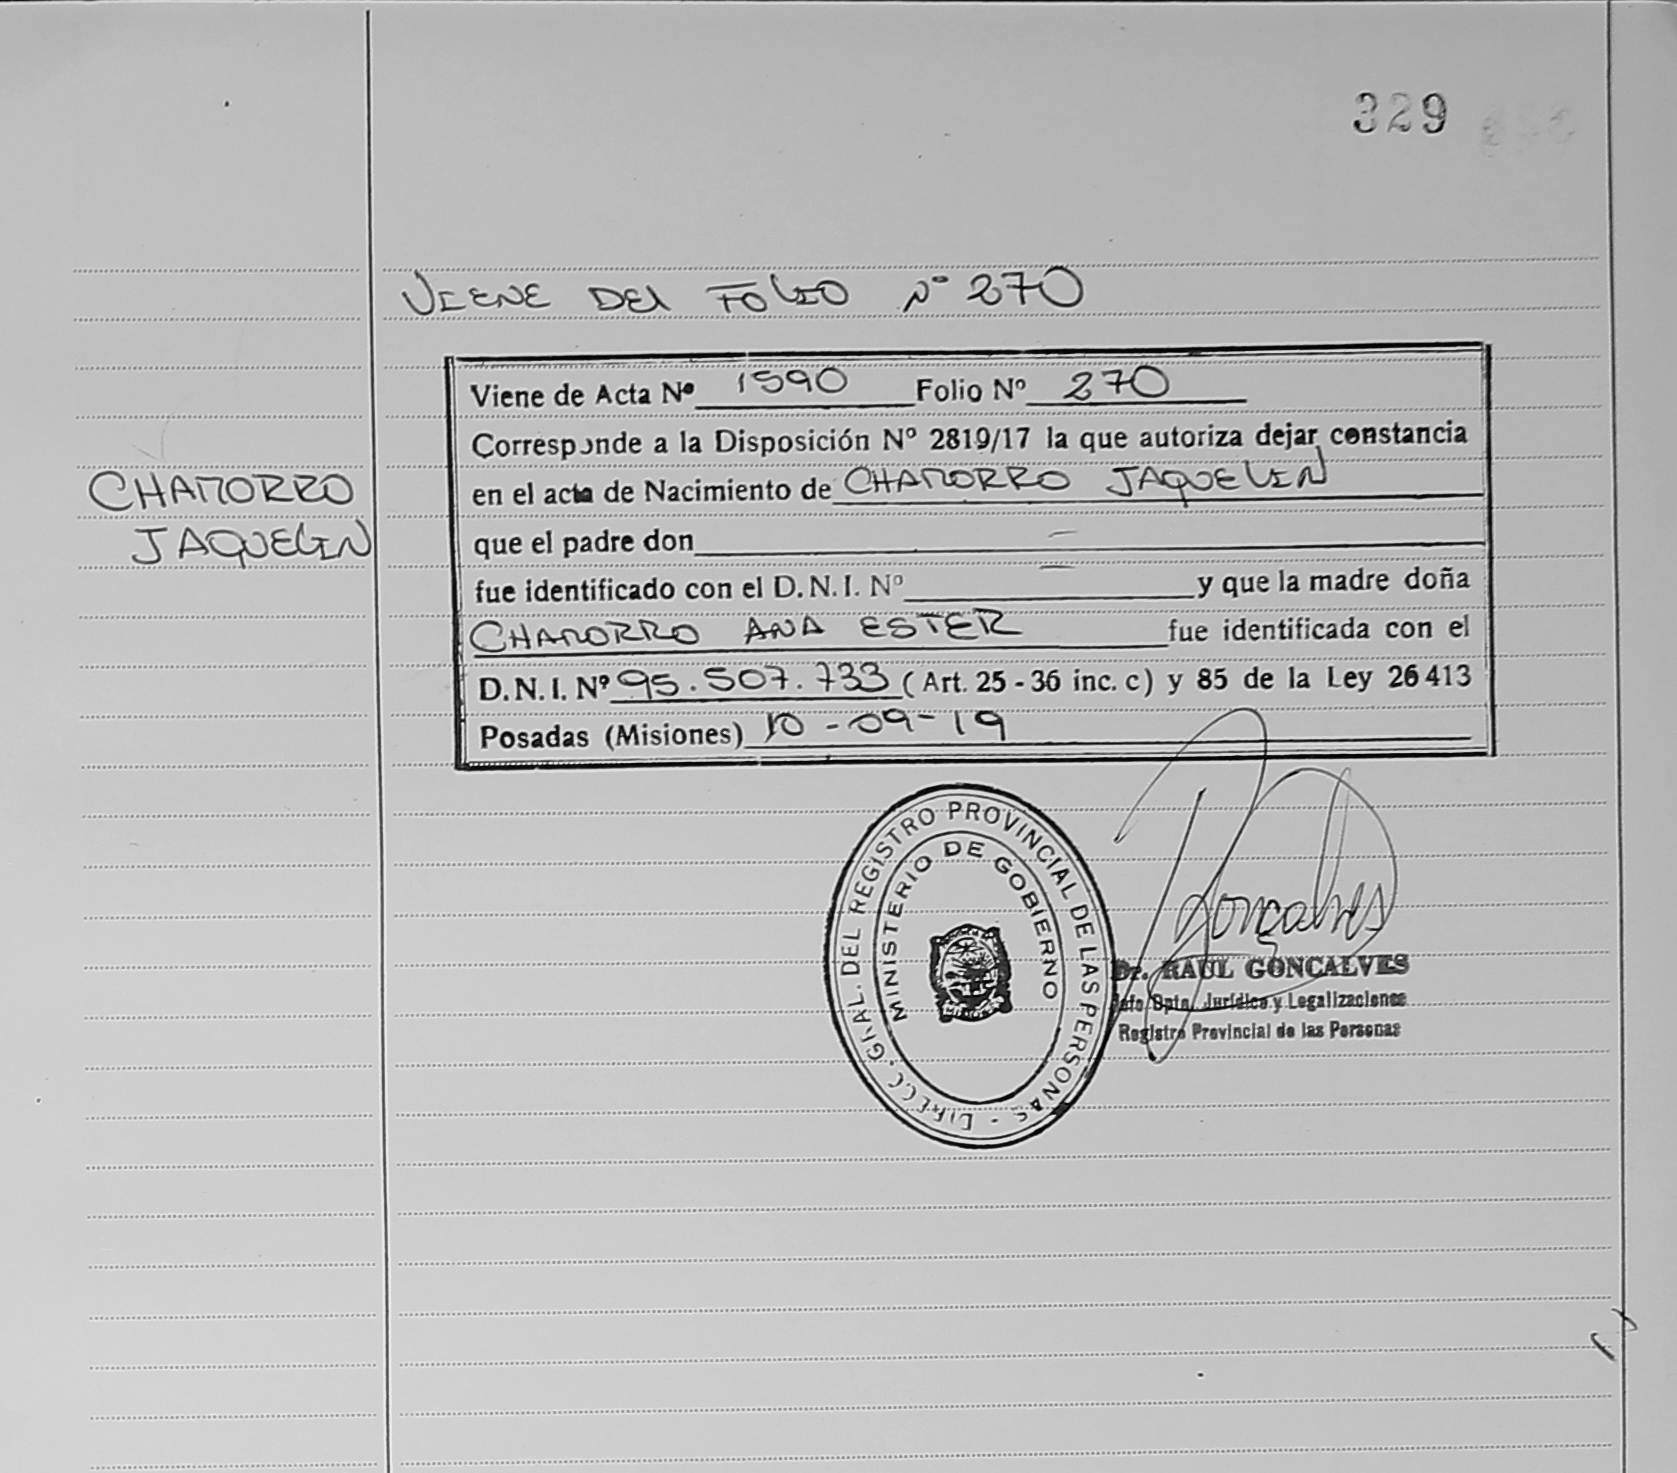 329
VIENE DEL FOLIO Nº 270
Viene de Acta Nº 1590 Folio Nº 270
Corresponde a la Disposición Nº 2819/17 la que autoriza dejar constancia
en el acta de Nacimiento de CHAMORRO JAQUELIN
CHAMORRO
JAQUELIN
que el padre don —
fue identificado con el D.N.I. Nº — y que la madre doña
CHAMORRO ANA ESTER fue identificada con el
D.N.I. Nº 95.507.733 (Art. 25 - 36 inc. c) y 85 de la Ley 26413
Posadas (Misiones) 10-09-19
DIRECC. GRAL. DEL REGISTRO PROVINCIAL DE LAS PERSONAS -
MINISTERIO DE GOBIERNO
Gonçalves
Dr. RAUL GONCALVES
Jefe Dpto. Jurídico y Legalizaciones
Registro Provincial de las Personas